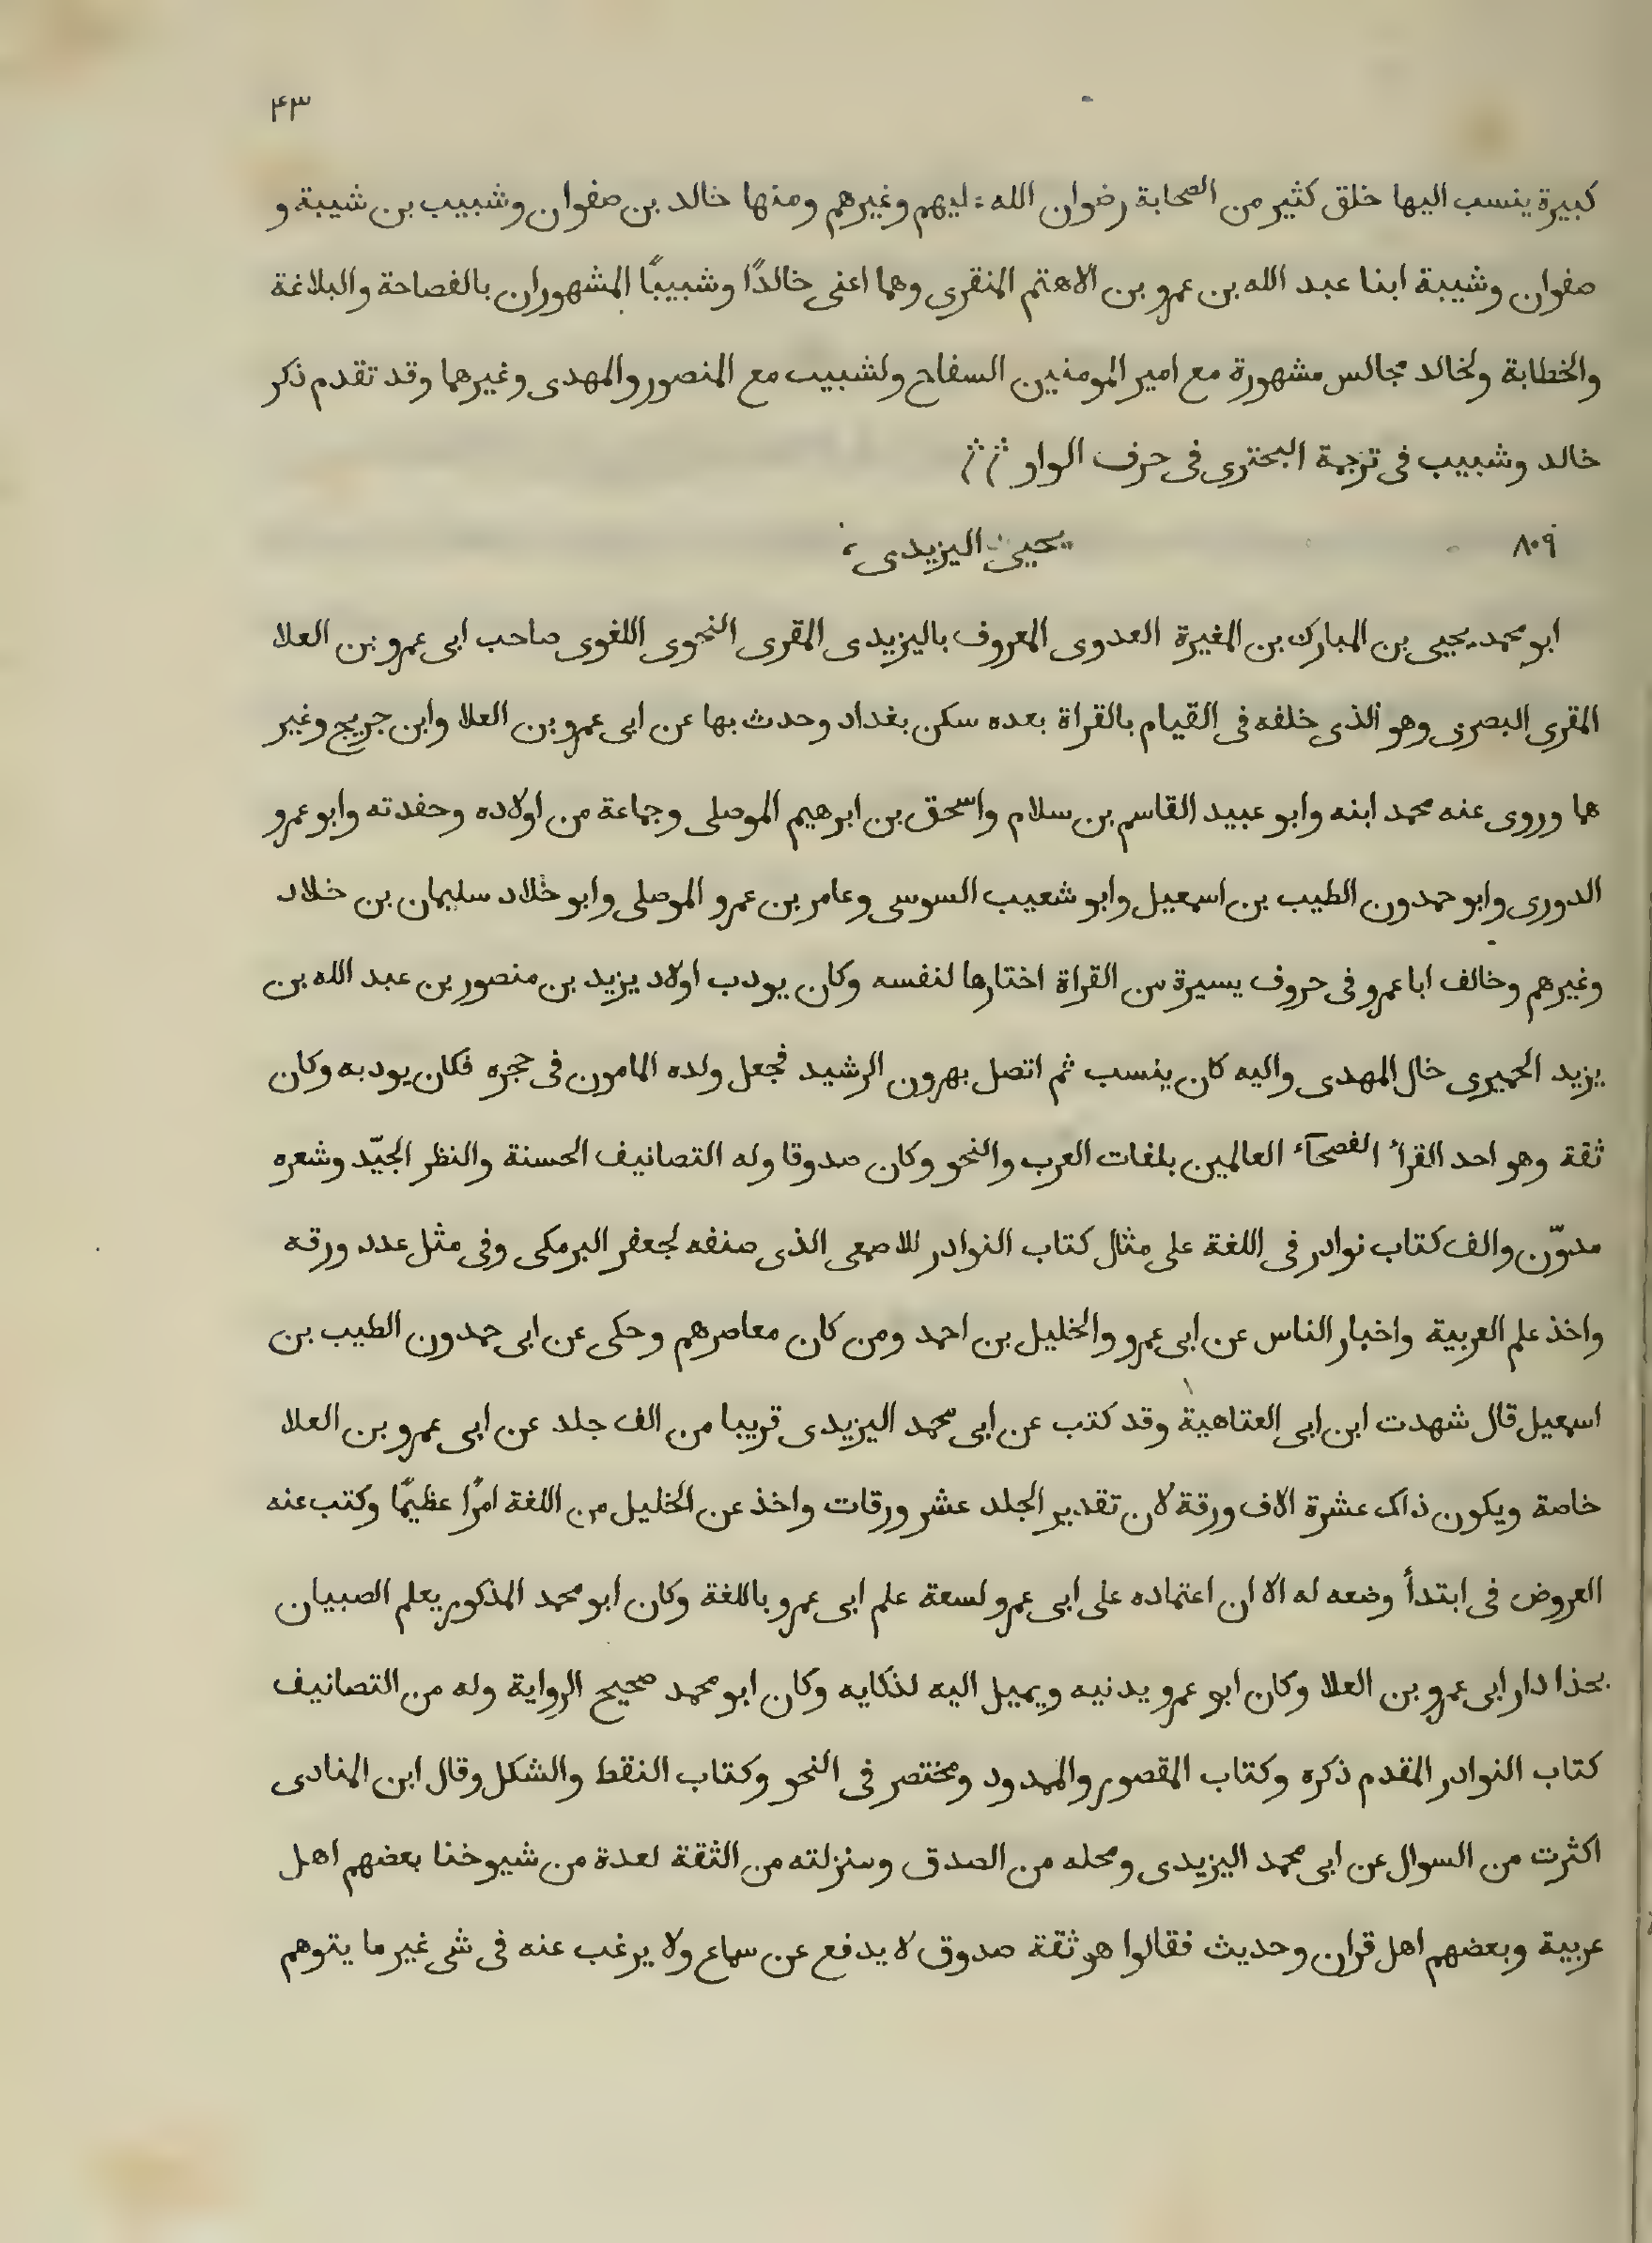 ۴۳
كبيرة ينسب اليها خلق كثير من الصحابة رضوان الله عليهم وغيرهم ومنها خالد بن صفوان وشبيب بن شيبة و
صفوان وشيبة ابنا عبد الله بن عمرو بن الاهتم المنقرى وهما اعنى خالدًا وشبيبًا المشهوران بالفصاحة والبلاغة
والخطابة ولخالد مجالس مشهورة مع امير المومنين السفاح ولشبيب مع المنصور والمهدى وغيرهما وقد تقدم ذكر
خالد وشبيب فى ترجمة البحترى فى حرف الواو
۸۰۹ يحيى اليزيدى
ابو محمد يحيى بن المبارك بن المغيرة العدوى المعروف باليزيدى المقرى النحوى اللغوى صاحب ابى عمرو بن العلا
المقرى البصرى وهو الذى خلفه فى القيام بالقراة بعده سكن بغداد وحدث بها عن ابى عمرو بن العلا وابن جريج وغير
هما وروى عنه محمد ابنه وابو عبيد القاسم بن سلام واسحق بن ابرهيم الموصلى وجماعة من اولاده وحفدته وابو عمرو
الدورى وابو حمدون الطيب بن اسمعيل وابو شعيب السوسى وعامر بن عمرو الموصلى وابو خلاد سليمان بن خلاد
وغيرهم وخالف ابا عمرو فى حروف يسيرة من القراة اختارها لنفسه وكان يودب اولاد يزيد بن منصور بن عبد الله بن
يزيد الحميرى خال المهدى واليه كان ينسب ثم اتصل بهرون الرشيد فجعل ولده المامون فى حجره فكان يودبه وكان
ثقة وهو احد القرأ الفصحآء العالمين بلغات العرب والنحو وكان صدوقا وله التصانيف الحسنة والنظر الجيّد وشعره
مدوّن والف كتاب نوادر فى اللغة على مثال كتاب النوادر للاصمعى الذى صنفه لجعفر البرمكى وفى مثل عدد ورقه
واخذ علم العربية واخبار الناس عن ابى عمرو والخليل بن احمد ومن كان معاصرهم وحكى عن ابى حمدون الطيب بن
اسمعيل قال شهدت ابن ابى العتاهية وقد كتب عن ابى محمد اليزيدى قريبا من الف جلد عن ابى عمرو بن العلا
خاصة ويكون ذاك عشرة الاف ورقة لان تقدير الجلد عشر ورقات واخذ عن الخليل من اللغة امرًا عظيمًا وكتب عنه
العروض فى ابتدأ وضعه له الا ان اعتماده على ابى عمرو لسعة علم ابى عمرو باللغة وكان ابو محمد المذكور يعلم الصبيان
بحذا دار ابى عمرو بن العلا وكان ابو عمرو يدنيه ويميل اليه لذكايه وكان ابو محمد صحيح الرواية وله من التصانيف
كتاب النوادر المقدم ذكره وكتاب المقصور والممدود ومختصر فى النحو وكتاب النقط والشكل وقال ابن المنادى
اكثرت من السوال عن ابى محمد اليزيدى ومحله من الصدق ومنزلته من الثقة لعدة من شيوخنا بعضهم اهل
عربية وبعضهم اهل قران وحديث فقالوا هو ثقة صدوق لا يدفع عن سماع ولا يرغب عنه فى شى غير ما يتوهم